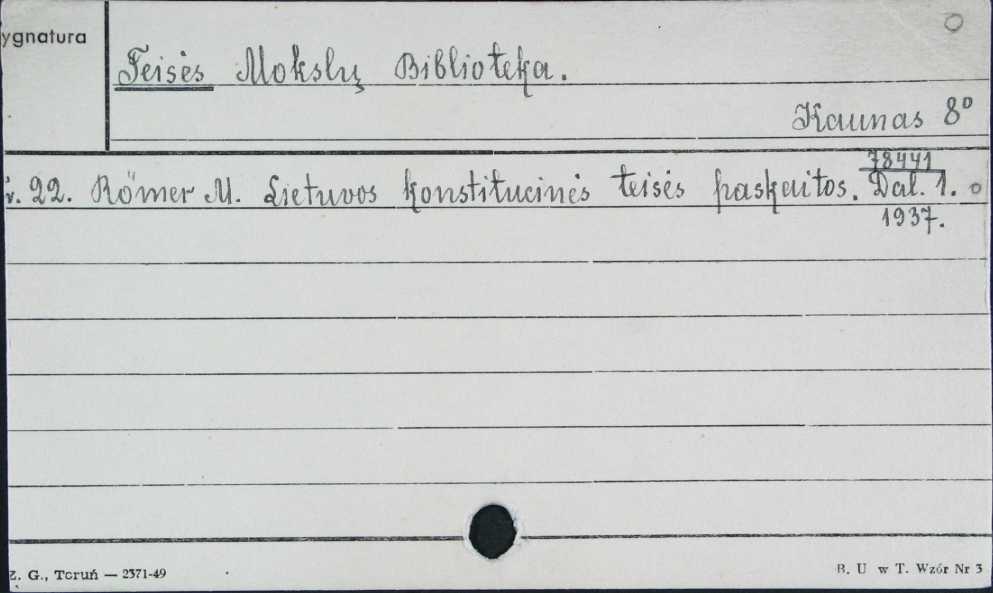 ygnatura
Teisės Mokslų Biblioteka.
Kaunas 8°
78441
v. 22. Römer M. Lietuvos konstitucinės teisės paskaitos. Dal. 1.
1937.
Z. G., Toruń — 2371-49
B. U w T. Wzór Nr 3